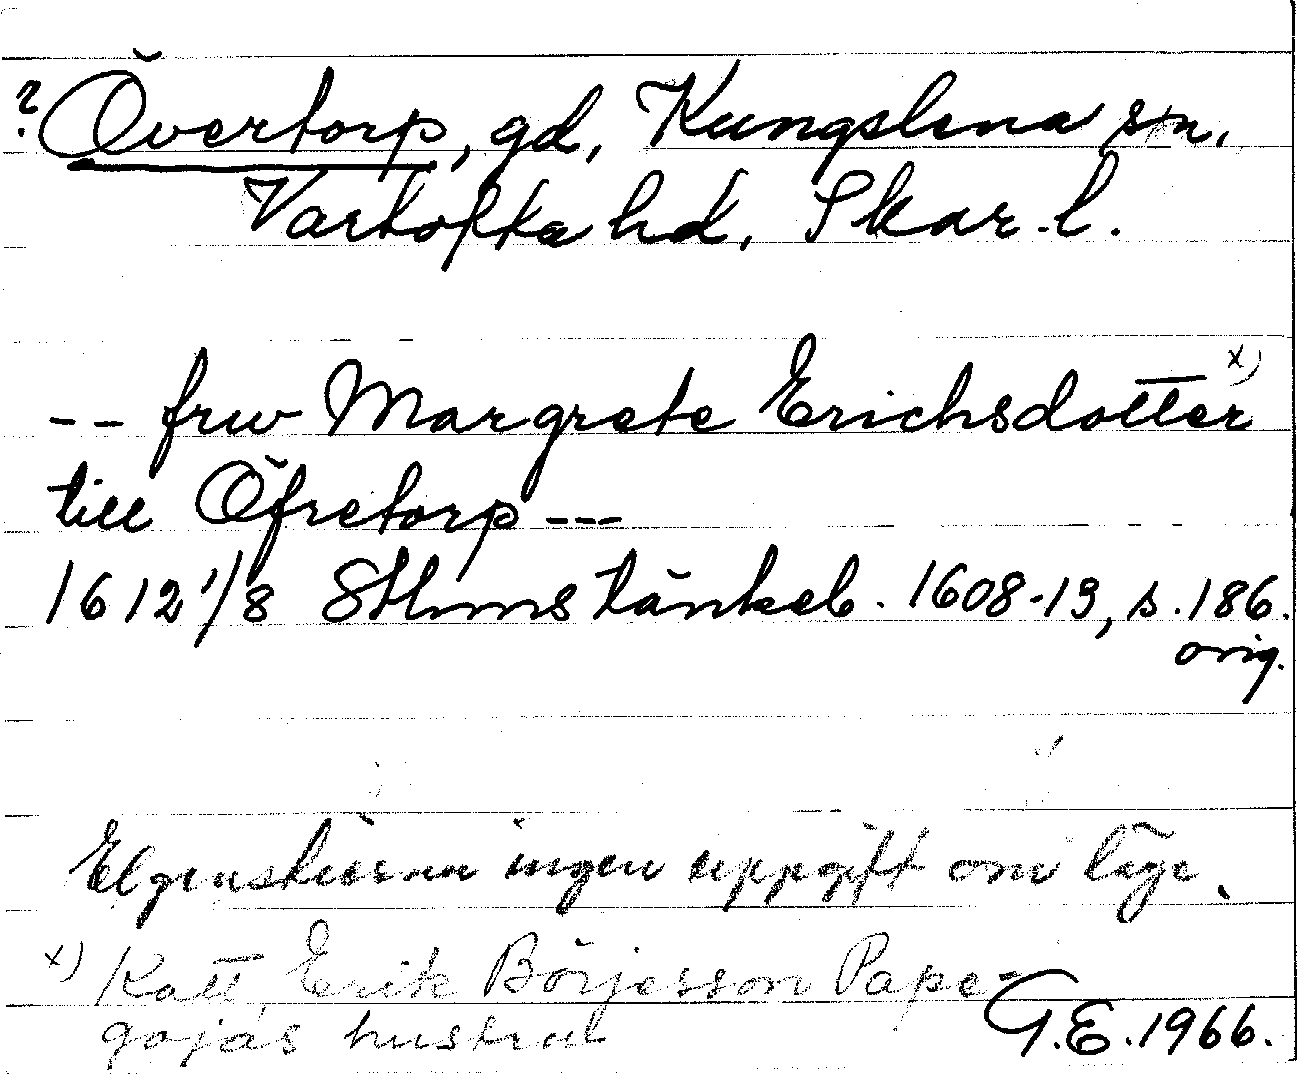 ? Övertorp, gd, Kungslena sn,
Vartofta hd, Skar. l.
-- frw Margrete Erichsdotter x)
till Öfretorp ---
1612 1/8 Sthms tänkeb. 1608-13, s. 186.
orig.
Elgenstierna ingen uppgift om läge.
x) Katt, Erik Börjesson Pape-
gojas hustru
G.E. 1966.